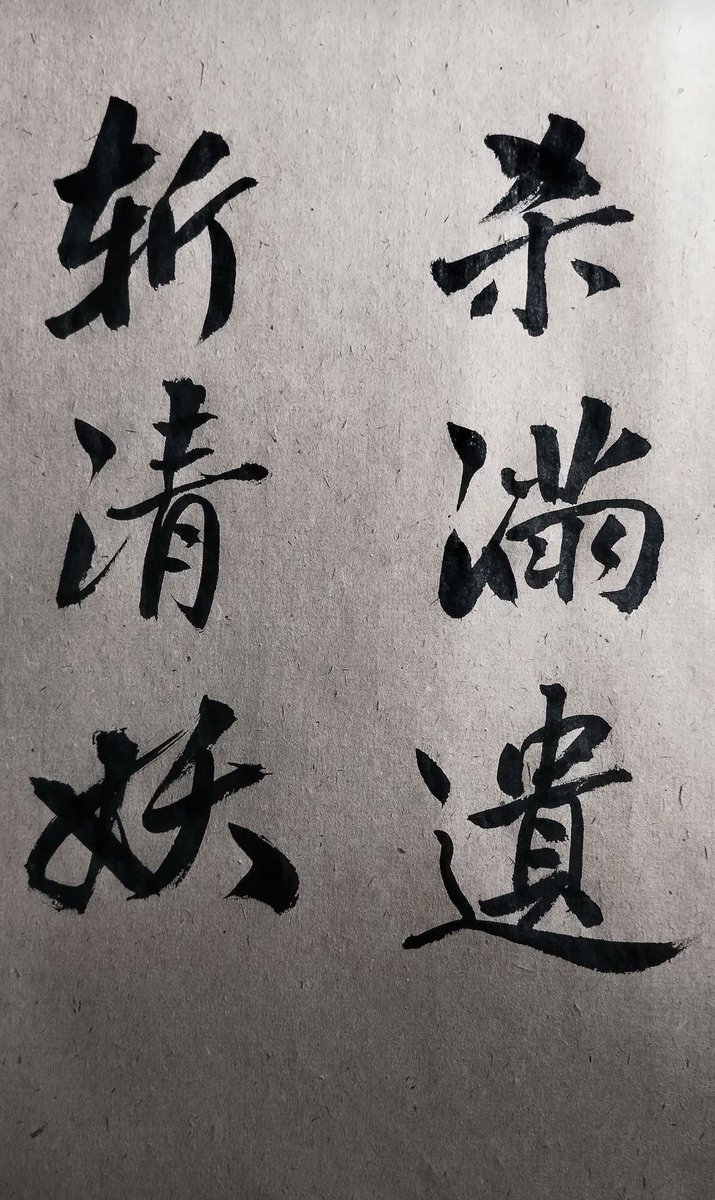 杀满遺
斩清妖